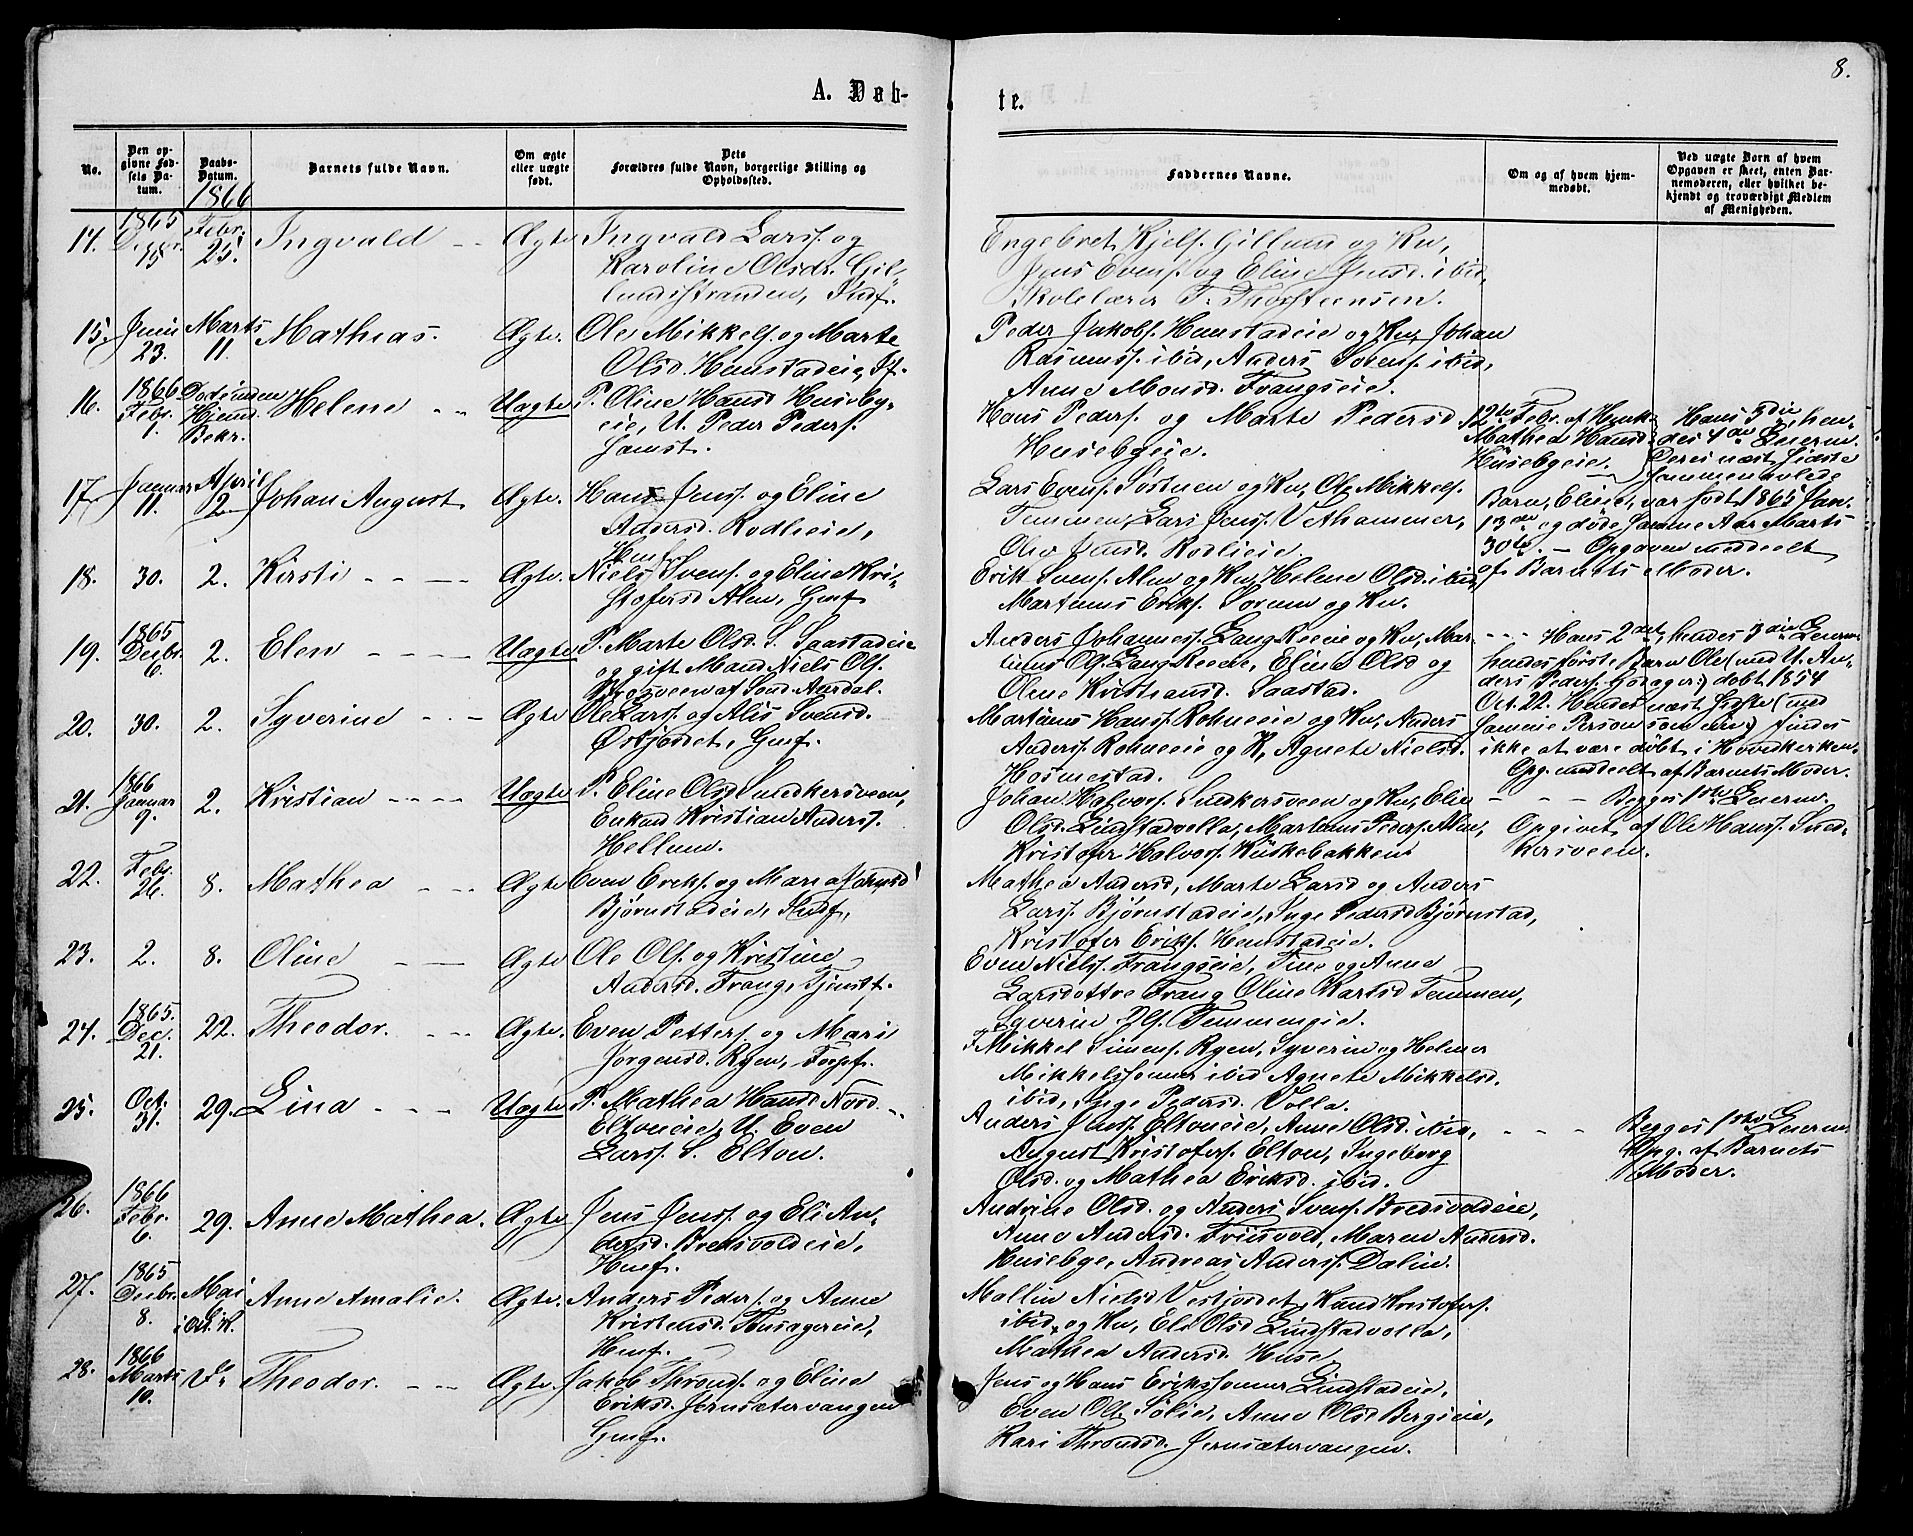 8.
A. Døb-
te.
No.
Den opgivne Fødsels Datum.
Daabs-Datum.
Barnets fulde Navn.
Om ægte eller uægte født.
Dets Forældres fulde Navn, borgerlige Stilling og Opholdssted.
Faddernes Navne.
Om og af hvem hjemmedøbt.
Ved uægte Børn af hvem Opgaven er skeet, enten Barnemoderen, eller hvilket bekjendt og troværdigt Medlem af Menigheden.
1866
14. 1865 Decbr. 15 Febr. 25. Ingvald Ægte Ingvald Larss. og
Karoline Olsdr. Gil-
lundstranden, Indf.
Engebret Kjels. Gillund og Kv,
Jens Evens. og Eline Jensd. ibid,
Skolelærer T. Thorsteensen.
15. Juni 23. Marts 11. Mathias. Ægte. Ole Mikkels. og Marte
Olsd. Hemstadeie, If.
Peder Jakobs. Hemstadeie og Kv, Johan
Rasmuss. ibid, Anders Sørens. ibid,
Anne Monsd. Frangseie.
16. 1866 Febr. 1. Død inden Hjemd. Bekr. Helene Uægte P. Oline Hansd Huseby-
eie, U. Peder Peders.
Samst.
Hans Peders. og Marte Pedersd
Husebyeie.
12te Febr. af
Mathea Hansd
Husebyeie.
Hans 3die, hen-
des 4de Leierm.
Deres næst sidste
Sammenavlede
Barn, Eline, var født 1865 Jan.
13de og døde samme Aar Marts
30te. — Opgaven meddeelt
af Barnets Moder.
17. Januar 11. April 2. Johan August Ægte. Hans Jenss. og Eline
Andersd. Rodlieie,
Hmf.
Lars Evens. Sostuen og Kv, Ole Mikkels.
Temmen, Lars Jens. Vethammer,
Olea Jensd. Rodlieie.
18. 30. 2. Kirsti Ægte. Niels Svens. og Eline Kri-
stofersd Alen, Gmf
Erik Svens. Alen og Kv, Helene Olsd ibid,
Martinus Eriks. Sørum og Kv.
19. 1865 Decbr. 6. 2. Elen Uægte P. Marte Olsd. S. Saastadeie
og gift Mand Niels Ols.
af Sønd. Aurdal.
Anders Johanness. Langkeeie og Kv, Mar-
tinus Ols. Langkeeie, Eline Olsd og
Oline Kristiansd. Saastad.
Hans 2det, hendes 3die Leierm.
hendes første Barn Ole (med U. An-
ders Peders. Godager) døbt 1854
Oct. 22. Hendes næst sidste (med
samme Person som nu) findes
ikke at være døbt i Hovedkirken.
Opg. meddeelt af Barnets Moder.
20. 30. 2. Syverine Ægte Ole Larss. og Alis Svensd.
Østjordet, Gmf.
Martinus Hanss. Rohneeie og Kv, Anders
Anderss. Rohneeie og K, Agnete Nielsd.
Hosmestad.
21. 1866 Januar 9. 2. Kristian Uægte P. Eline Olsd Snedkersveen,
Enkem Kristian Anderss.
Hellum.
Johan Halvors. Snedkersveen og Kv, Eline
Olsd. Lindstadvolla, Martinus Peders. Alen,
Kristofer Halvors. Kuskebakken.
Begges 1ste Leierm.
Opgivet af Ole Hanss. Sned-
kersveen.
22. Febr. 26. 8. Mathea Ægte Even Eriks. og Maria
Bjørnstadeie, Indf.
Mathea Andersd, Marte Larsd og Anders
Larss. Bjørnstadeie, Inge Pedersd Bjørnstad,
Kristofer Eriks. Hemstadeie.
23. 2. 8. Oline Ægte Ole Ols. og Kristine
Andersd. Frang, Tjenstf.
Even Niels. Frangseie, Tine og Anne
Larsdøttre Frang, Oline Karlsd Temmen,
Syverin Ols. Temmengeie.
24. 1865. Dec. 21. 22. Theodor. Ægte. Even Petters. og Mari
Jørgensd. Ryen, Forpf.
Mikkel Simens. Ryen, Syverin og Helmer
Mikkelssønner ibid Agnete Mikkelsd.
ibid, Inge Pedersd. Volla.
25. Oct. 31. 29. Lina Uægte P. Mathea Hansd Nord-
Eltoneie, U. Even
Larss. S. Elton.
Anders Jenss. Eltoneie, Anne Olsd. ibid,
August Kristofers. Elton, Ingeborg
Olsd. og Mathea Eriksd. ibid.
Begges 1ste Leierm.
Opg. af Barnets
Moder.
26. 1866 Febr. 6. 29. Anne Mathea. Ægte Jens Jenss. og Eli An-
dersd. Bredsvoldeie,
Hmf.
Andrine Olsd. og Anders Svens. Bredsvoldeie,
Anne Andersd. Friisvold, Maren Andersd.
Husebye, Andreas Anderss. Dalin.
27. 1865 Decbr. 8. Mai i Ot. K. Anne Amalie. Ægte. Anders Peders. og Anne
Kristensd. Husagereie,
Hmf.
Mallin Nielsd Vestjordet, Hans Kristofers.
ibid og Kv, Eli Olsd Lindstadvolla,
Mathea Andersd. Huse.
28. 1866 Marts 10. Do Theodor. Ægte. Jakob Thronds. og Eline
Eriksd. Jernsætervangen
Gmf.
Jens og Hans Erikssønner Lindstadeie,
Even Ols. Sølie, Anne Olsd Bergseie,
Kari Throndsd. Jernsætervangen.